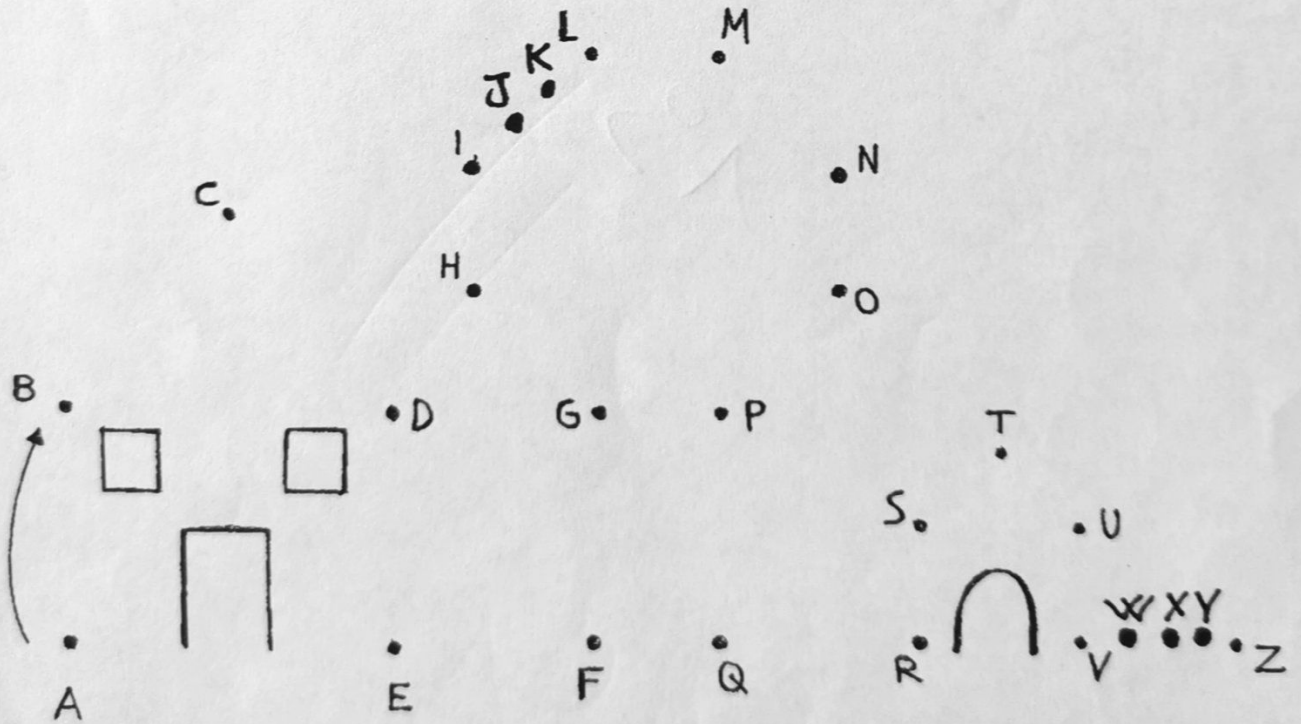 L M
K
J
I N
C
H O
B D G P T
S U
W X Y
A E F Q R V Z